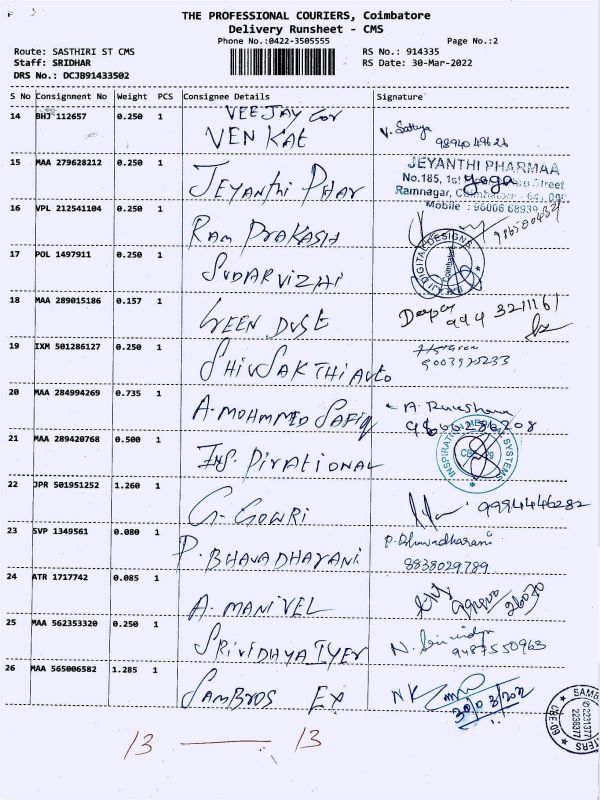 THE PROFESSIONAL COURIERS, Coimbatore
Delivery Runsheet - CMS
Phone No.:0422-3505555 Page No.:2
Route: SASTHIRI ST CMS RS No.: 914335
Staff: SRIDHAR RS Date: 30-Mar-2022
DRS No.: DCJB91433502
S No Consignment No Weight PCS Consignee Details Signature
14 BHJ 112657 0.250 1 VEEJAY Cor
VENKAT V. Sathya
98940 49626
15 MAA 279628212 0.250 1 JEYANTHI PHARMAA
Jeyanthi Phar No.185, 1st Street
yoga
Ramnagar, Coimbatore
Mobile : 96006 68939
16 VPL 212541104 0.250 1
RAM PRAKASH
17 POL 1497911 0.250 1 DIGITAL DESIGNS
SUDARVIZHI Coimbatore
18 MAA 289015186 0.157 1
GREEN DUST 944 3211161
19 IXM 501286127 0.250 1
SHIVSAKTHI AUTO 9003925233
20 MAA 284994269 0.735 1
A. MOHMMED SAFIQ A. Rukshana
9866286208
21 MAA 289420768 0.500 1 SYSTEMS
INS. PIRATIONAL
22 JPR 501951252 1.260 1
G. GOWRI 9994446282
23 SVP 1349561 0.080 1 P. Bhuvadharani
P. BHAVADHARANI 8838029789
24 ATR 1717742 0.085 1
A. MANIVEL
25 MAA 562353320 0.250 1
SRIVIDHYA IYER N. Srividya
9487550963
26 MAA 565006582 1.285 1
SAMBROS EX NK
30/03/2022
13 — 13